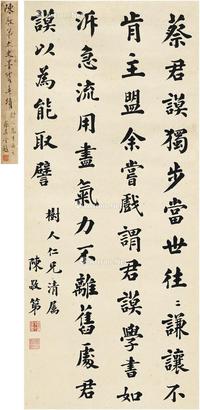 蔡君謨獨步當世往〻謙讓不
肯主盟余嘗戲謂君謨學書如
泝急流用盡氣力不離舊處君
謨以為能取譬
樹人仁兄清屬
陳敬第